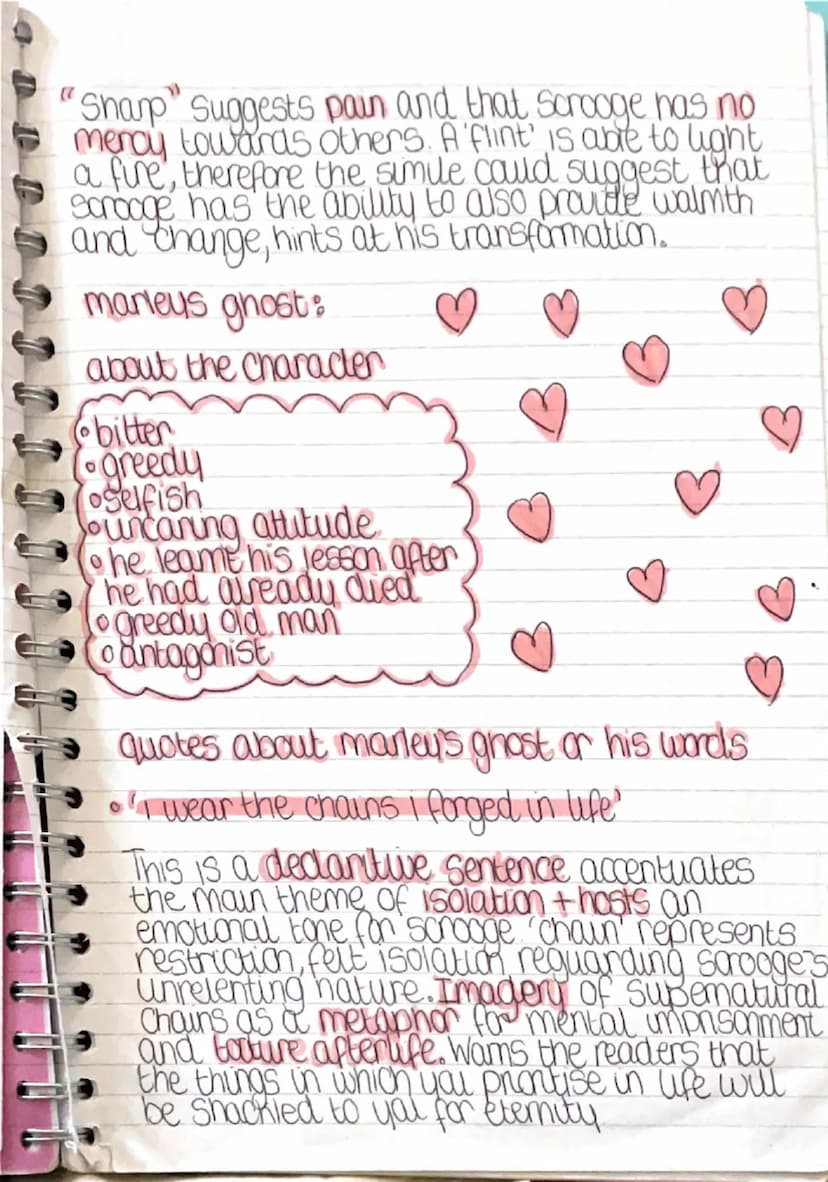 "Sharp" suggests pain and that scrooge has no
mercy towards others. A 'flint' is able to light
a fire, therefore the simile could suggest that
scrooge has the ability to also provide walmth
and change, hints at his transformation.
marleys ghost:
about the character
• bitter
• greedy
• selfish
• uncaring attitude
• he learnt his lesson after
he had already died
• greedy old man
• antagonist
quotes about marley's ghost or his words
• 'i wear the chains i forged in life'
This is a declaritive sentence accentuates
the main theme of isolation + hosts an
emotional tone for scrooge. 'chain' represents
restriction, felt isolation reguarding scrooge's
unrelenting nature. Imagery of supernatural
chains as a metaphor for mental imprisonment
and torture afterlife. Warns the readers that
the things in which you prioritise in life will
be shackled to you for eternity